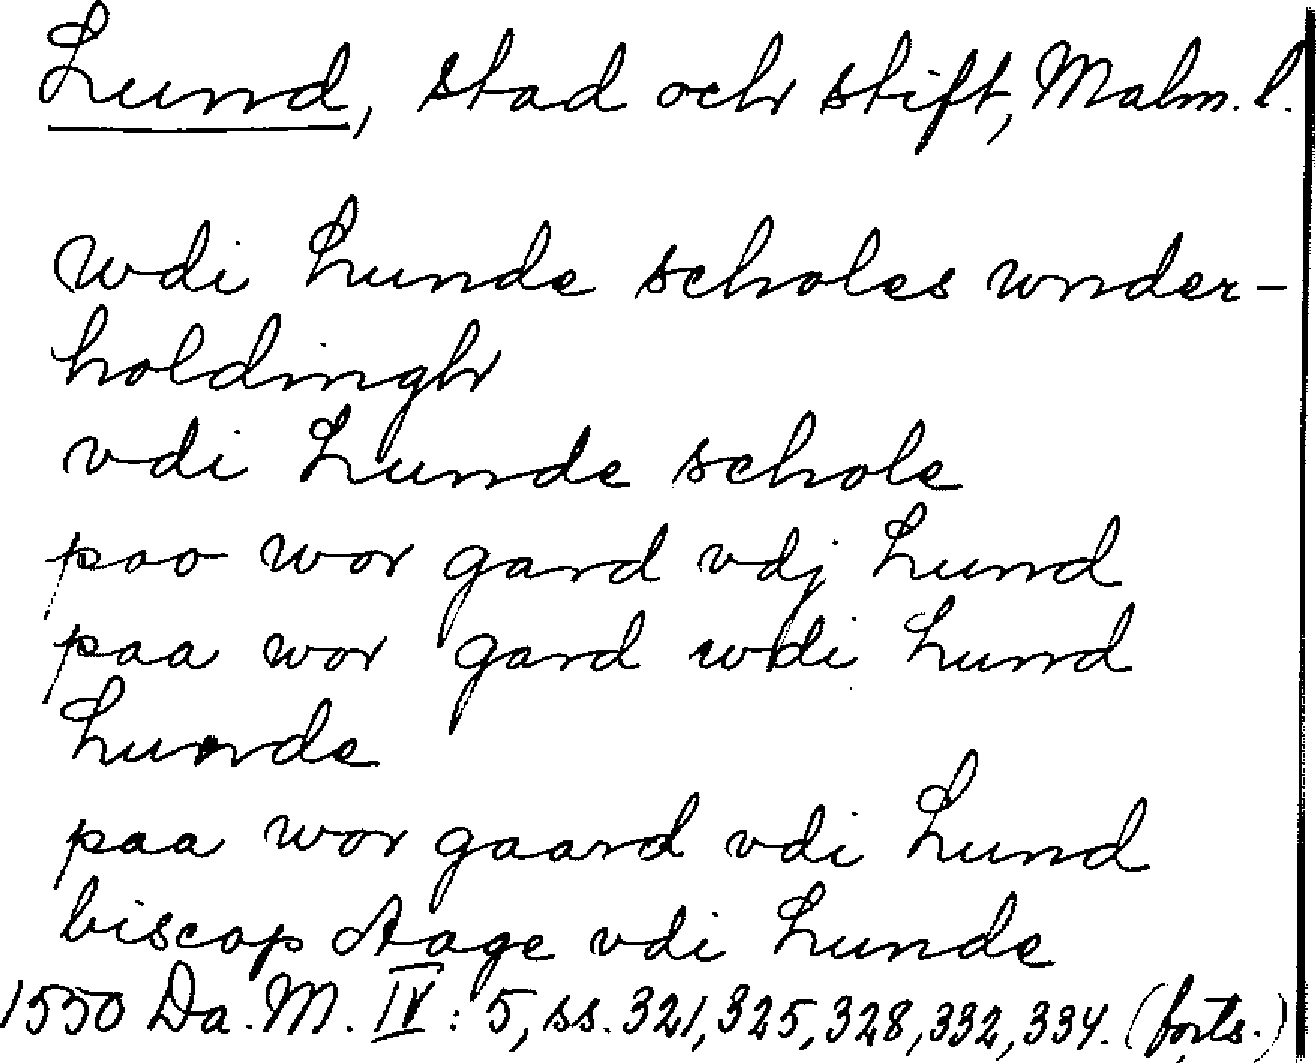 Lund, stad och stift, Malm. l.
wdi Lunde scholes wnder-
holdingh
vdi Lunde schole
paa wor gard vdj Lund
paa wor gard wdi Lund
Lunde
paa wor gaard vdi Lund
biscop Aage vdi Lunde
1550 Da. M. IV: 5, ss. 321, 325, 328, 332, 334. (forts.)